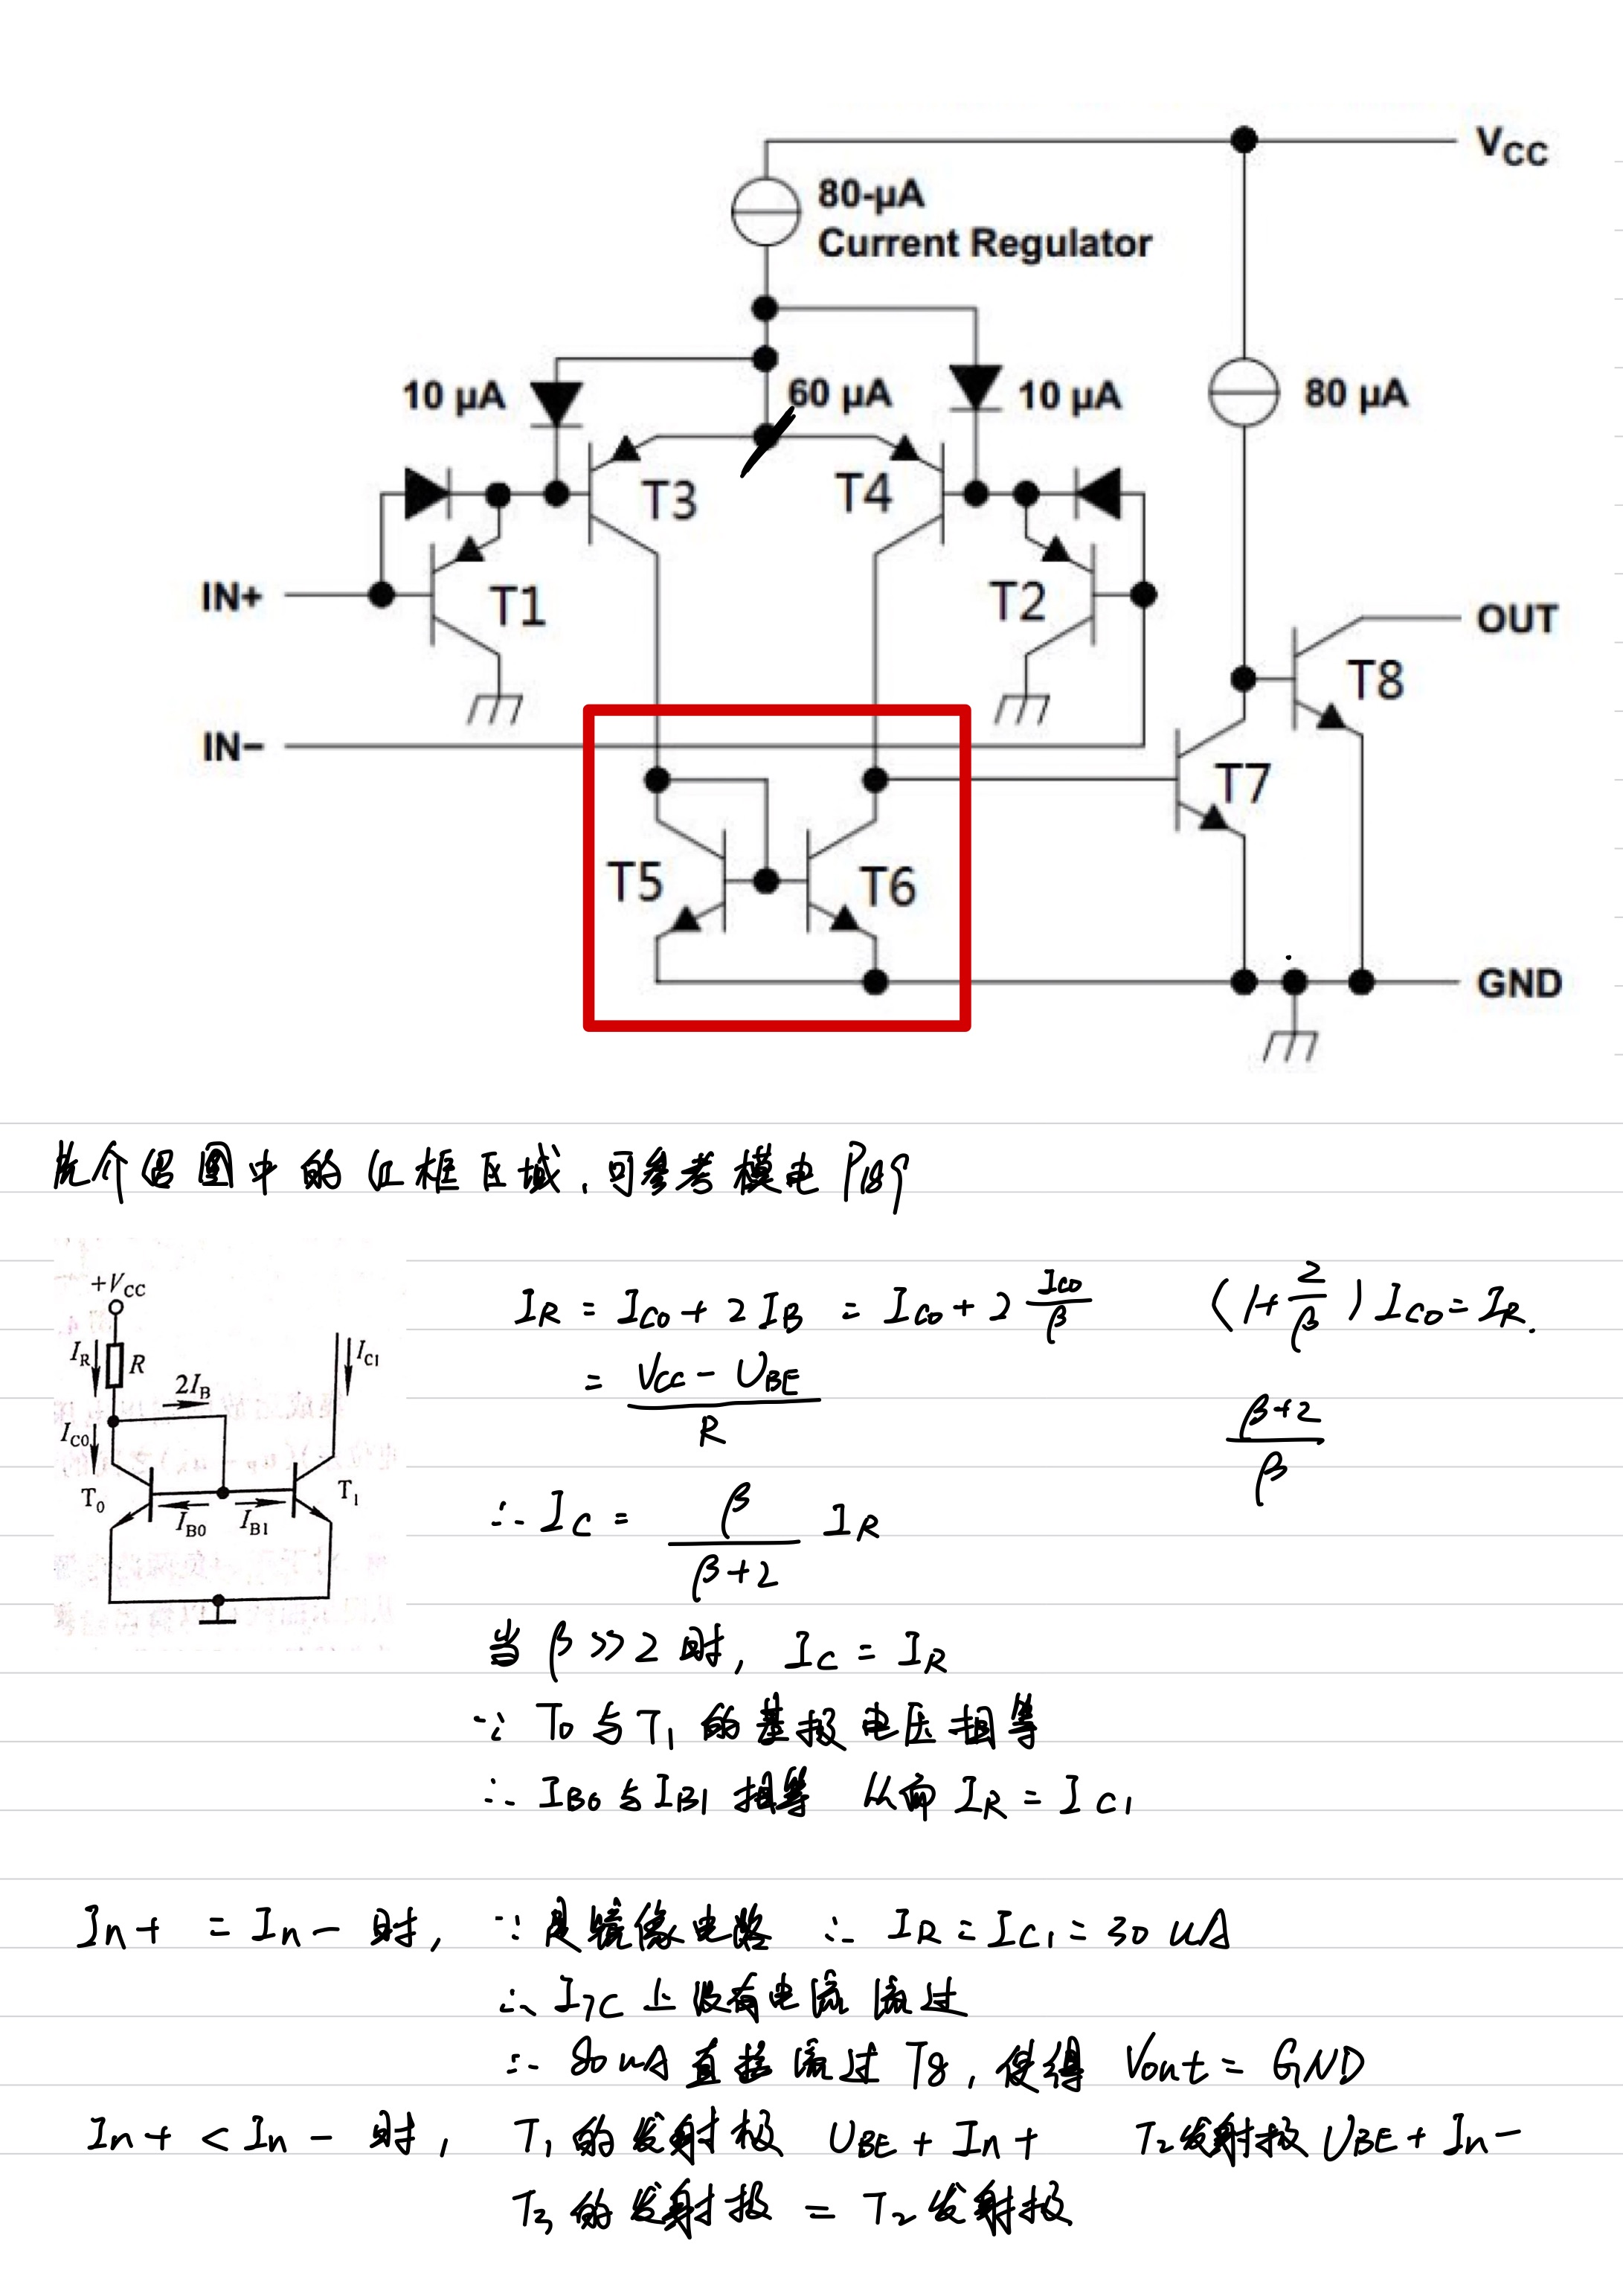 VCC
80-µA
Current Regulator
10 µA
60 µA
10 µA
80 µA
T3
T4
IN+
T1
T2
OUT
T8
IN−
T7
T5
T6
GND
先个绍图中的红框区域,可参考模电P189
+VCC
IR
R
IC1
2IB
IC0
T0
T1
IB0
IB1
IR = ICO + 2 IB = ICO + 2 ICO/β
(1+2/β) ICO = IR.
= (VCC - UBE)/R
(β+2)/β
∴ IC = β/(β+2) IR
当 β >> 2 时, IC = IR
∵ T0 与 T1 的基极电压相等
∴ IB0 与 IB1 相等 从而 IR = IC1
In+ = In- 时, ∵ 是镜像电路 ∴ IR = IC1 = 30 uA
∴ I7C 上没有电流流过
∴ 80 uA 直接流过 T8, 使得 Vout = GND
In+ < In- 时, T1 的发射极 UBE + In+ T2 发射极 UBE + In-
T3 的发射极 = T2 发射极